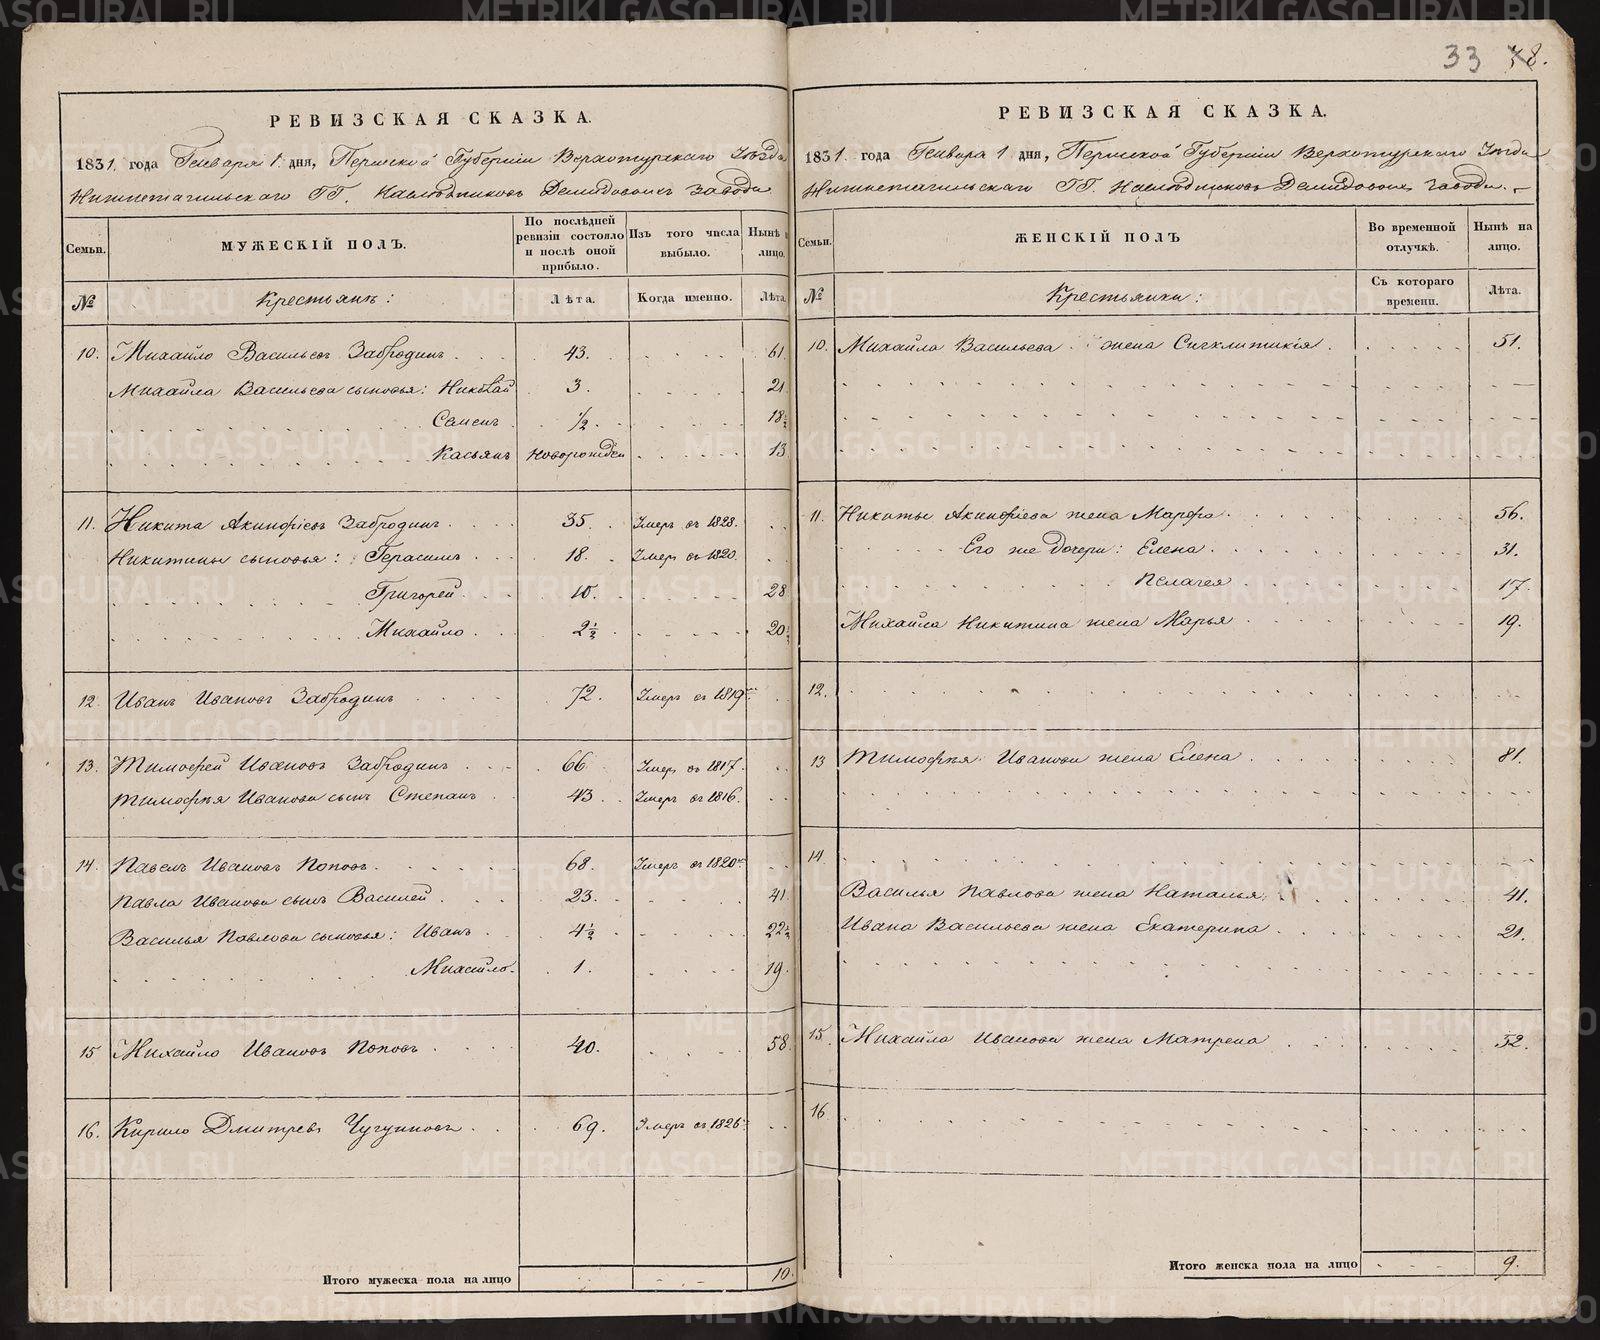 33 48.
РЕВИЗСКАЯ СКАЗКА.
1831. года Генваря 1. дня, Пермской Губернии Верхотурскаго Уѣзда
Нижнетагильскаго ГГ. Наслѣдниковъ Демидовыхъ завода
Семьи. МУЖЕСКІЙ ПОЛЪ. По послѣдней ревизіи состояло и послѣ оной прибыло. Изъ того числа выбыло. Нынѣ на лицо.
№ Крестьянъ: Лѣта. Когда именно. Лѣта
10. Михайло Васильевъ Забродинъ 43. 61.
Михайла Васильева сыновья: Николай 3. 21
Семенъ ½. 18½
Касьянъ новорожден 13
11. Никита Акинфіевъ Забродинъ 35. Умеръ въ 1828.
Никитины сыновья: Герасимъ 18. Умеръ въ 1820
Григорей 10. 28
Михайло 2½ 20½
12. Иванъ Ивановъ Забродинъ 72. Умеръ въ 1819
13. Тимофей Ивановъ Забродинъ 66 Умеръ въ 1817.
Тимофѣя Иванова сынъ Степанъ 43 Умеръ въ 1816.
14. Павелъ Ивановъ Поповъ 68. Умеръ въ 1820
Павла Иванова сынъ Василей 23. 41.
Василья Павлова сыновья: Иванъ 4½ 22½
Михайло. 1. 19.
15 Михайло Ивановъ Поповъ 40. 58
16. Кирило Дмитревъ Чугуновъ 69. Умеръ въ 1826
Итого мужеска пола на лицо 10.
РЕВИЗСКАЯ СКАЗКА.
1831. года Генваря 1 дня, Пермской Губернии Верхотурскаго Уѣзда
Нижнетагильскаго ГГ. Наслѣдниковъ Демидовыхъ завода.
Семьи. ЖЕНСКІЙ ПОЛЪ Во временной отлучкѣ. Нынѣ на лицо.
№ Крестьянки: Съ котораго времени. Лѣта.
10. Михайла Васильева жена Сигклитикія 51.
11. Никиты Акинфіева жена Марфа 56.
Его же дочери: Елена 31.
Пелагея 17.
Михайла Никитина жена Марья 19.
12.
13 Тимофѣя Иванова жена Елена 81.
14
Василья Павлова жена Наталья 41.
Ивана Васильева жена Екатерина 21.
15. Михайла Иванова жена Матрена 52.
16
Итого женска пола на лицо 9.
METRIKI.GASO-URAL.RU